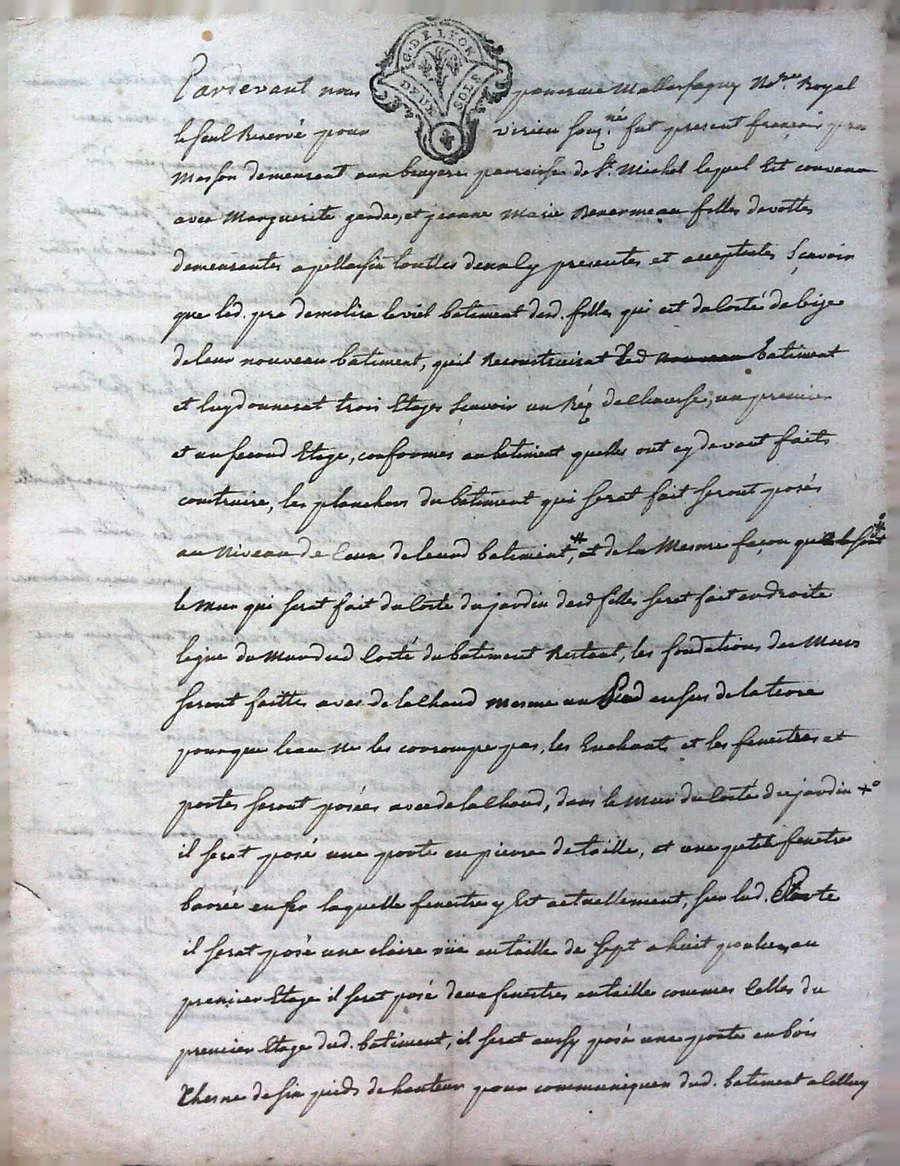 G. DE LYON
DEUX SOLS
Pardevant nous No.re Royal
le seul Reservé pour virieu sou.né fut present françois pra
Masson demeurant aux bruyeres parroisse de St. Michel lequel Est convenu
avec Marguerite gardes, et jeanne Marie filles devottes
demeurantes presentes et acceptantes Sçavoir
que led. pra demolira le viel batiment desd. filles qui est du Costé de bize
de leur nouveau batiment, quil Reconstruirat led batiment
et luy donnerat trois Etages Sçavoir un Réz de Chausse, un premier
et un second Etage, conformes au batiment quelles ont cy devant faits
construire, les planchers du batiment qui serat fait seront posés
au Niveau de Ceux de leurd batiment, et de la Mesme façon
le Mur qui serat fait du Costé du jardin desd filles serat fait en droite
ligne du Mur dud Costé du batiment Restant, les fondations des Murs
seront faittes avec de la Chaud mesme un Pied en sus de la terre
pour que leau Ne les corrompe pas, les Enchants et les fenestres et
portes seront posées avec de la Chaud, dans le Mur du Costé du jardin
il serat posé une porte en pierre de taille, et une petite fenetre
barrée en fer laquelle fenetre y Est actuellement, sur lad. Porte
il serat posé une claire vüe en taille de sept a huit pouces, au
premier Etage il serat posé deux fenestres en taille commes Celles du
premier Etage dud. batiment, il serat aussy posé une porte en bois
Chesne de six pieds de hauteur pour communiquer dud. batiment a Celluy